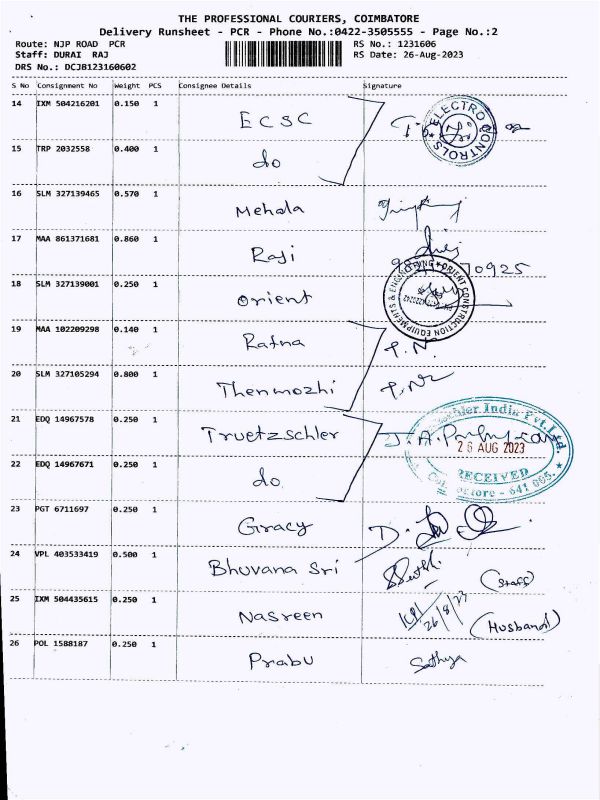 THE PROFESSIONAL COURIERS, COIMBATORE
Delivery Runsheet - PCR - Phone No.:0422-3505555 - Page No.:2
Route: NJP ROAD PCR
RS No.: 1231606
Staff: DURAI RAJ
RS Date: 26-Aug-2023
DRS No.: DCJB123160602
S No Consignment No Weight PCS Consignee Details Signature
14 IXM 504216201 0.150 1 ECSC
ELECTRO CONTROLS
15 TRP 2032558 0.400 1 do
16 SLM 327139465 0.570 1 Mehala
17 MAA 861371681 0.860 1 Raji
70925
18 SLM 327139001 0.250 1 Orient
ORIENT CONSTRUCTION EQUIPMENTS & ENGINEERING
19 MAA 102209298 0.140 1 Ratna T.N.
20 SLM 327105294 0.800 1 Thenmozhi
21 EDQ 14967578 0.250 1 Truetzschler
India Pvt. Ltd.
26 AUG 2023
RECEIVED
641 005.
22 EDQ 14967671 0.250 1 do
23 PGT 6711697 0.250 1 Gracy
24 VPL 403533419 0.500 1 Bhuvana Sri (Staff)
25 IXM 504435615 0.250 1 Nasreen 26/8/23 (Husband)
26 POL 1588187 0.250 1 Prabu Sathya